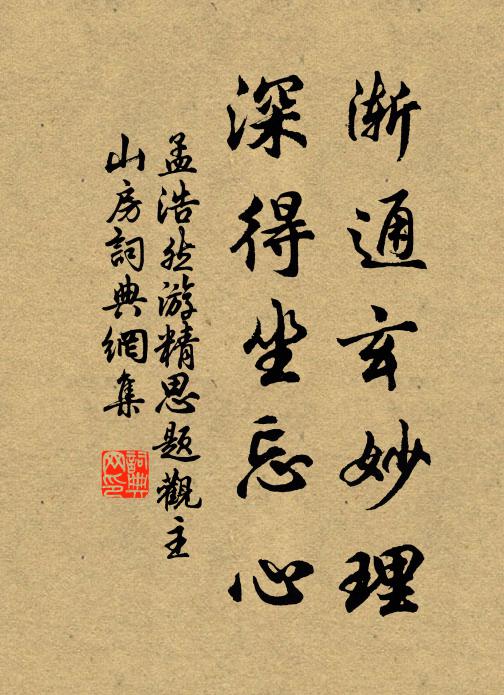 渐通玄妙理
深得坐忘心
孟浩然游精思题觀主
山房詞典網集
詞典
网印